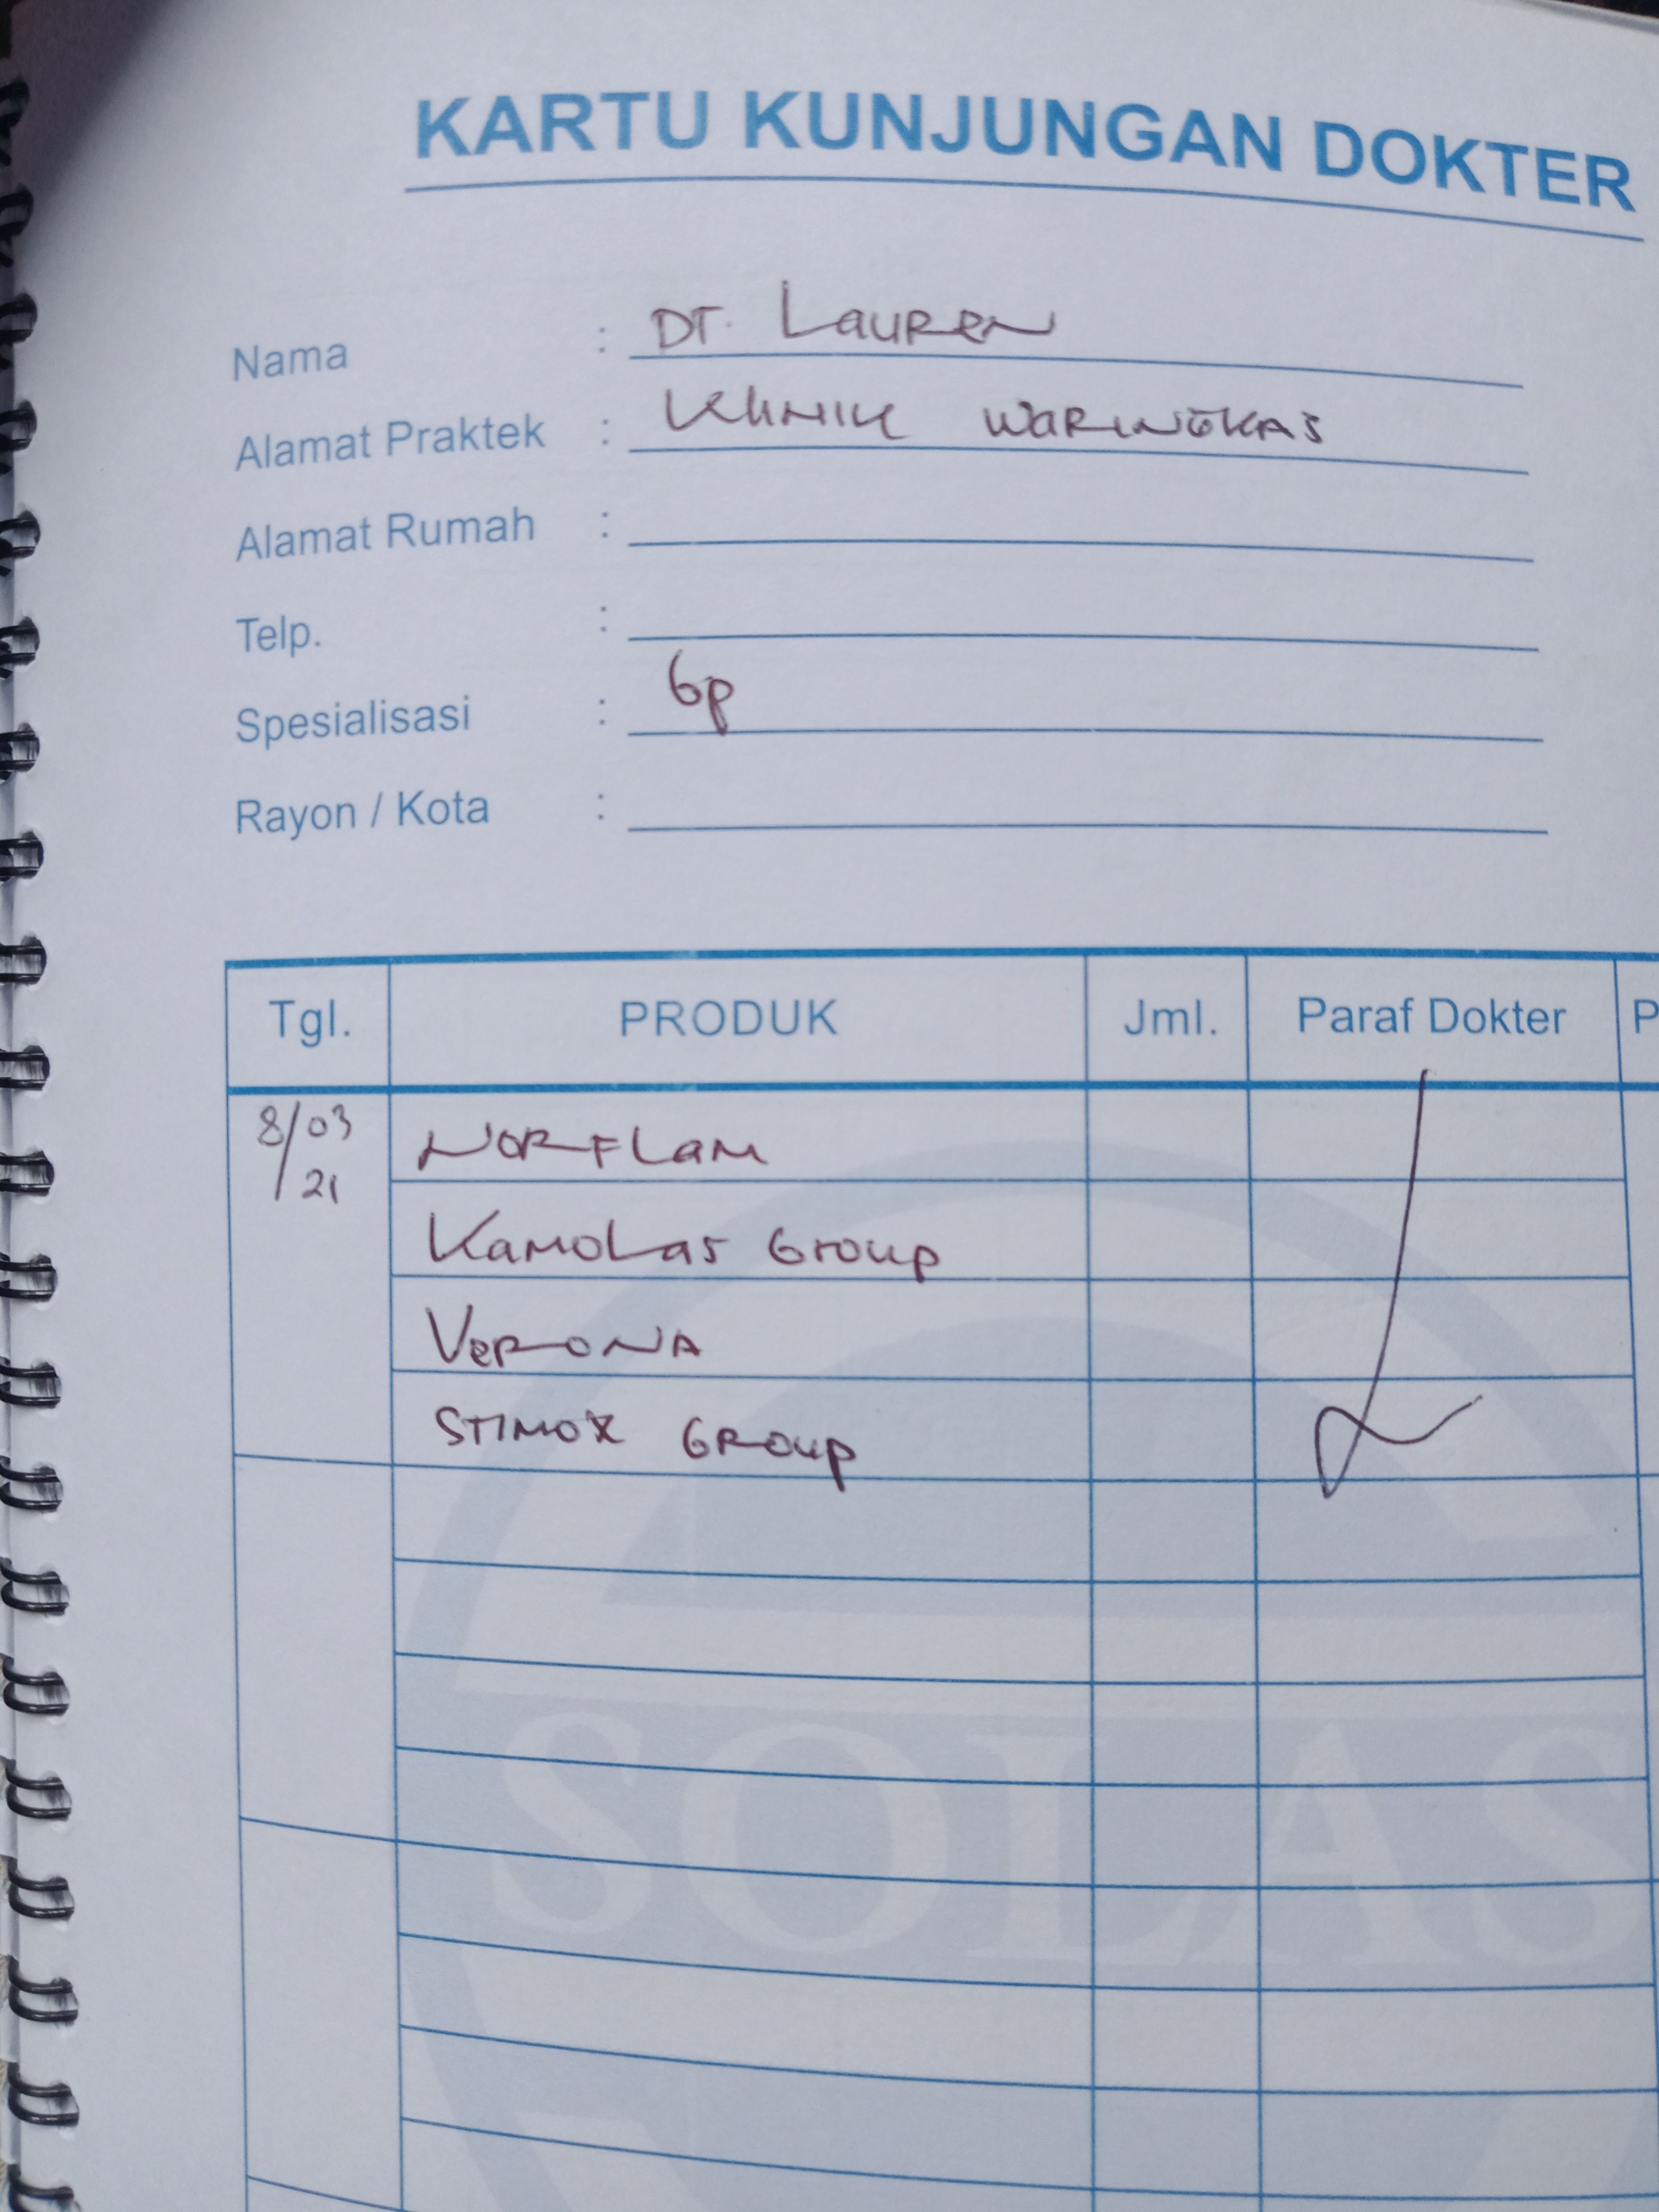 KARTU KUNJUNGAN DOKTER
Nama : DT. Lauren
Alamat Praktek : Klinik WARINGKAS
Alamat Rumah :
Telp. :
Spesialisasi : Gp
Rayon / Kota :
Tgl. PRODUK Jml. Paraf Dokter P
8/03/21 NORFLAM
KamoLas Group
VERONA
STIMOX GROUP
SOLAS